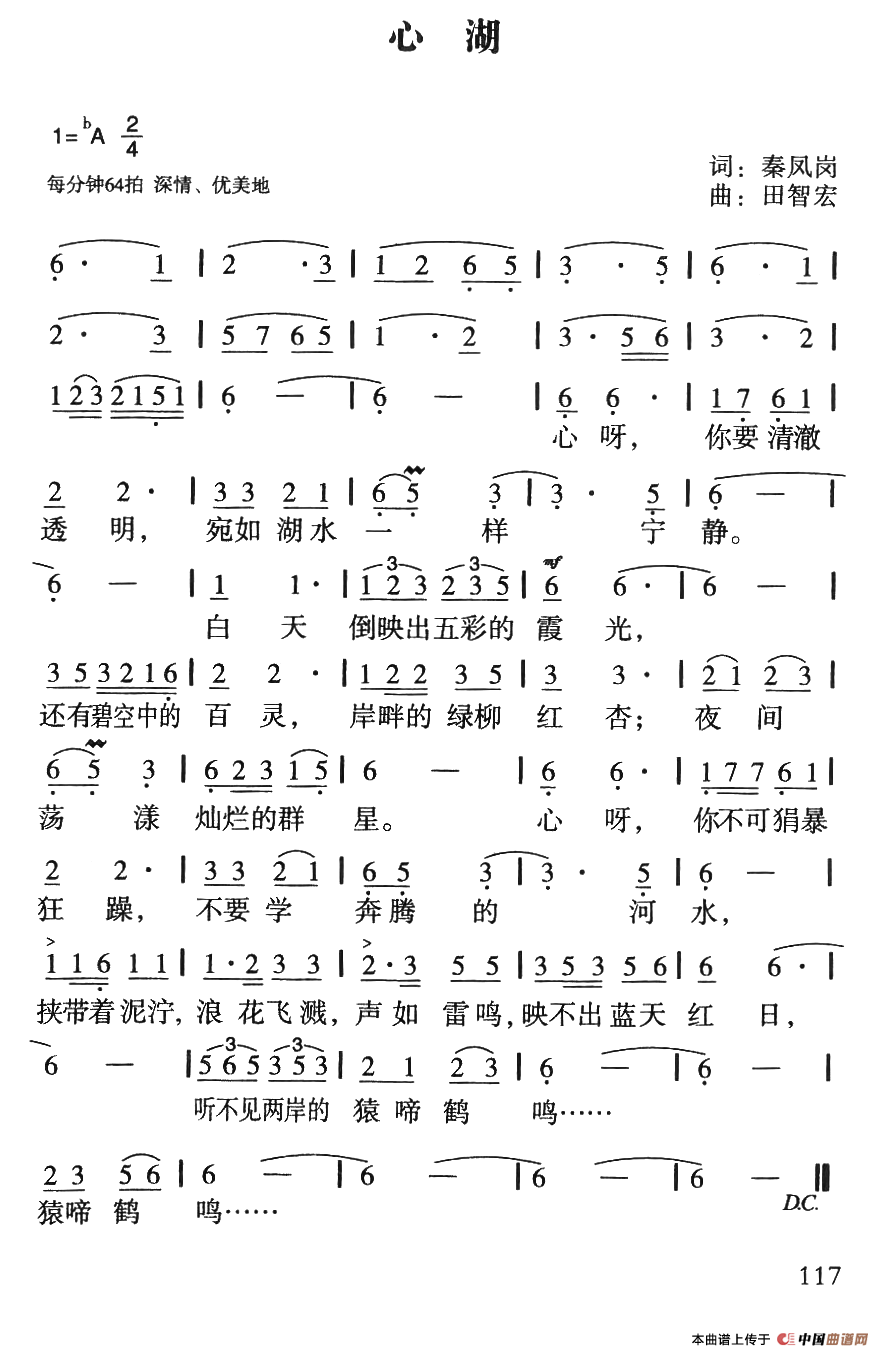 心 湖
1=ᵇA 2/4
每分钟64拍 深情、优美地
词：秦凤岗
曲：田智宏
6 · 1 | 2 · 3 | 1 2 6 5 | 3 · 5 | 6 · 1 |
2 · 3 | 5 7 6 5 | 1 · 2 | 3 · 5 6 | 3 · 2 |
1 2 3 2 1 5 1 | 6 — | 6 — | 6 6 · | 1 7 6 1 |
心 呀， 你要 清澈
2 2 · | 3 3 2 1 | 6 5 3 | 3 · 5 | 6 — |
透 明， 宛如 湖水 一 样 宁 静。
6 — | 1 1 · | 3 1 2 3 3 2 3 5 | mf 6 6 · | 6 — |
白 天 倒映出五彩的 霞 光，
3 5 3 2 1 6 | 2 2 · | 1 2 2 3 5 | 3 3 · | 2 1 2 3 |
还有碧空中的 百 灵， 岸畔的 绿柳 红 杏； 夜 间
6 5 3 | 6 2 3 1 5 | 6 — | 6 6 · | 1 7 7 6 1 |
荡 漾 灿烂的群 星。 心 呀， 你不可狷暴
2 2 · | 3 3 2 1 | 6 5 3 | 3 · 5 | 6 — |
狂 躁， 不要 学 奔腾 的 河 水，
> 1 1 6 1 1 | 1 · 2 3 3 | > 2 · 3 5 5 | 3 5 3 5 6 | 6 6 · |
挟带着 泥泞， 浪 花飞溅， 声如 雷鸣， 映不出 蓝天 红 日，
6 — | 3 5 6 5 3 3 5 3 | 2 1 2 3 | 6 — | 6 — |
听不见两岸的 猿 啼 鹤 鸣……
2 3 5 6 | 6 — | 6 — | 6 — | 6 — ‖
D.C.
猿啼 鹤 鸣……
117
本曲谱上传于 中国曲谱网